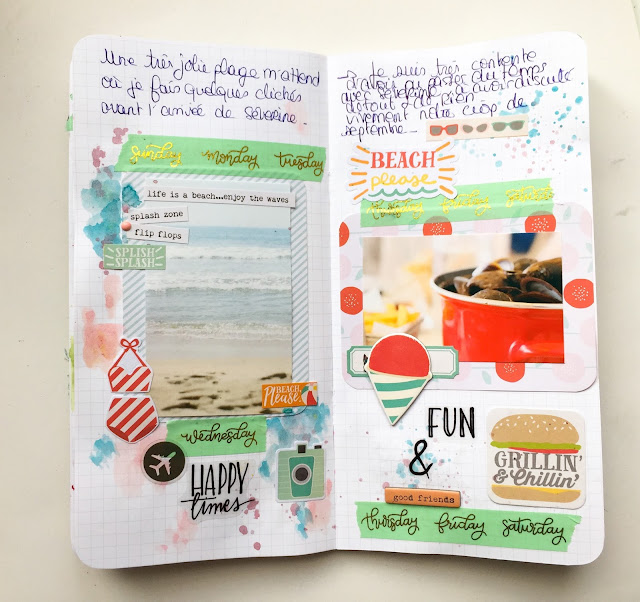 Une très jolie plage m'attend
où je fais quelques clichés
avant l'arrivée de Séverine.
sunday monday tuesday
life is a beach...enjoy the waves
splash zone
flip flops
SPLISH
SPLASH
BEACH
Please
wednesday
HAPPY
times
Je suis très contente
d'avoir pu passer du temps
avec Séverine, à avoir discuté
de tout & de rien
vivement notre crop de
septembre.
BEACH
please
FUN
&
GRILLIN'
& Chillin'
good friends
thursday friday saturday